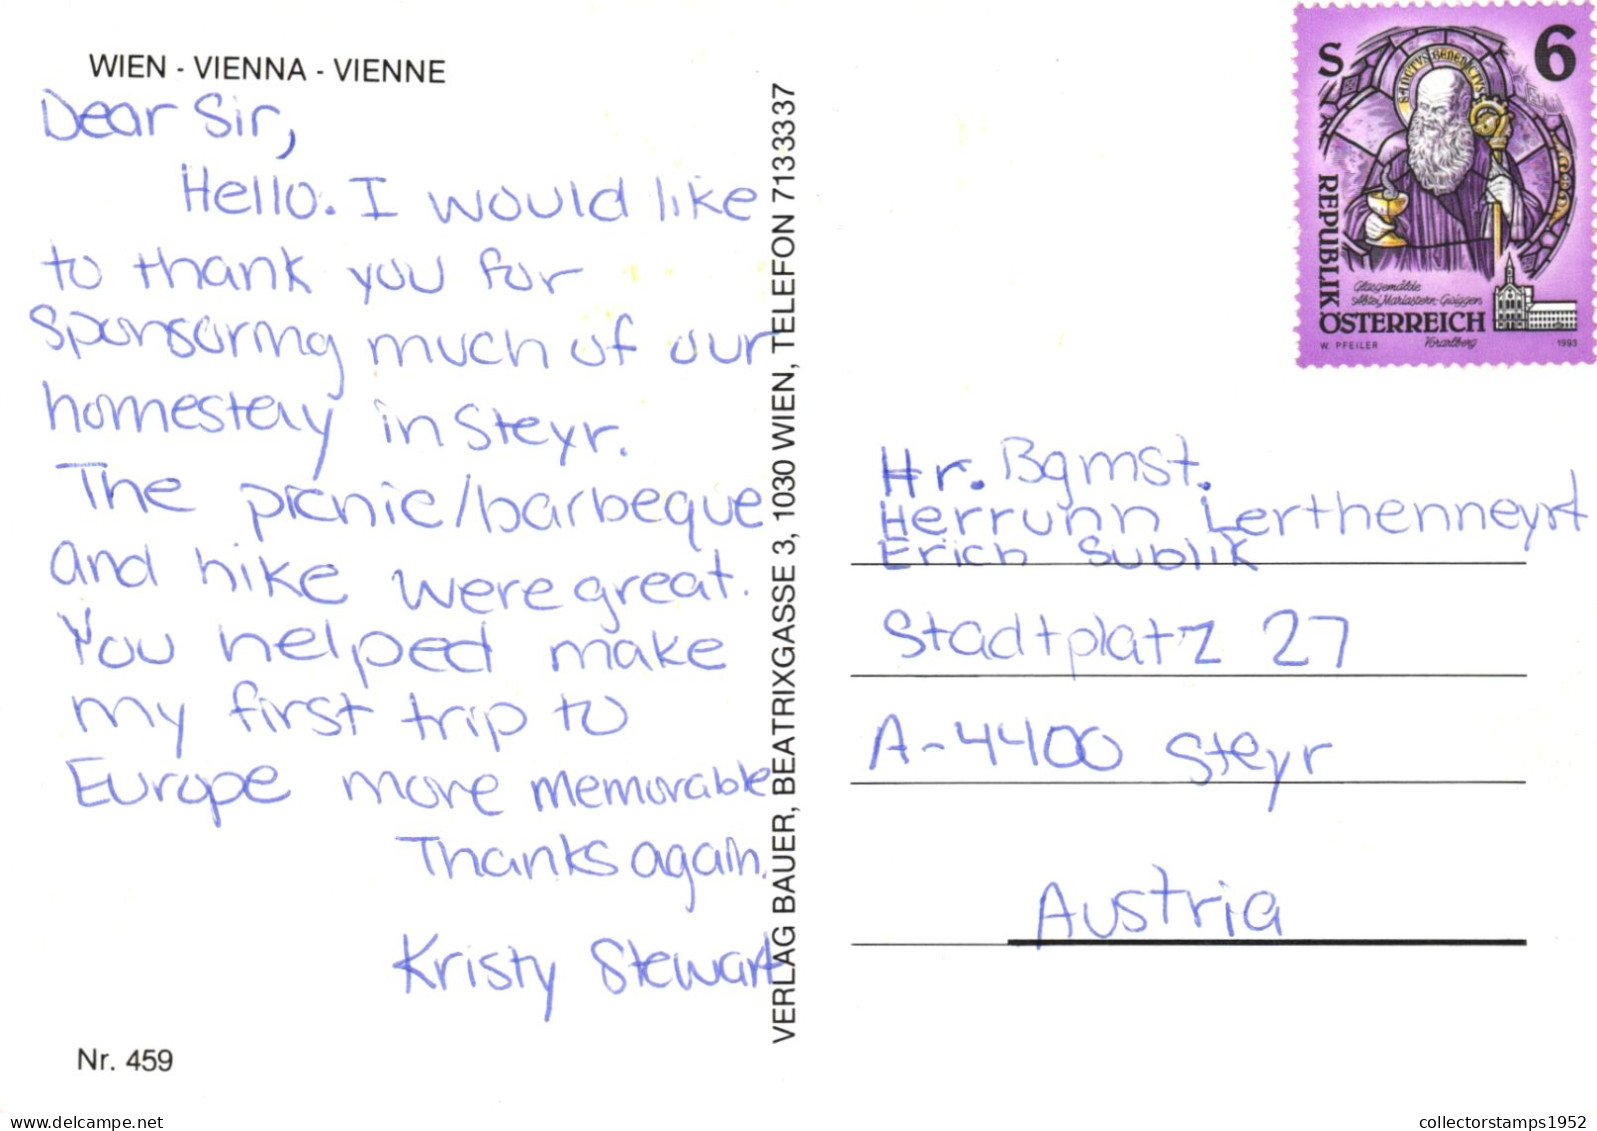 WIEN - VIENNA - VIENNE
Dear Sir,
Hello. I would like
to thank you for
sponsoring much of our
homestay in Steyr.
The picnic/barbeque
and hike were great.
You helped make
my first trip to
Europe more memorable
Thanks again.
Kristy Stewart
Nr. 459
VERLAG BAUER, BEATRIXGASSE 3, 1030 WIEN, TELEFON 7133337
S 6
SANCTVS BENEDICTVS
REPUBLIK
ÖSTERREICH
Glasgemälde
Abtei Mariastern-Gwiggen
Vorarlberg
W. PFEILER
1993
Hr. Bgmst.
Herrunn Lerthenneyrt
Erich Sublik
Stadtplatz 27
A-4400 Steyr
Austria
delcampe.net
collectorstamps1952